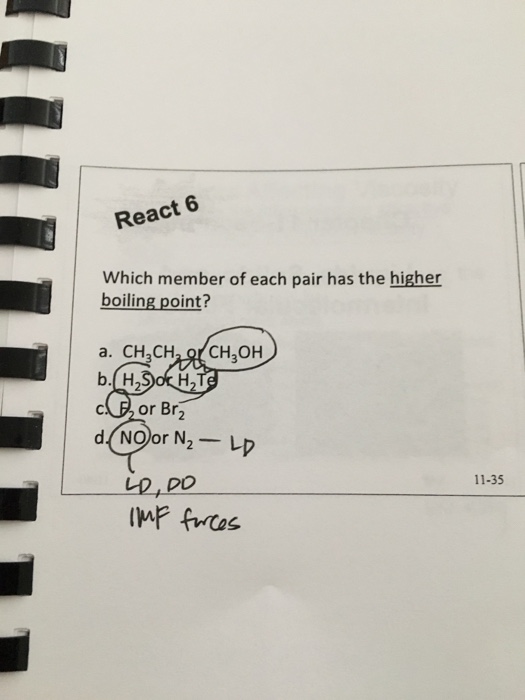 React 6
Which member of each pair has the higher
boiling point?
a. CH₃CH₃ or CH₃OH
b. H₂S or H₂Te
c. F₂ or Br₂
d. NO or N₂ — LD
LD, DD
IMF forces
11-35